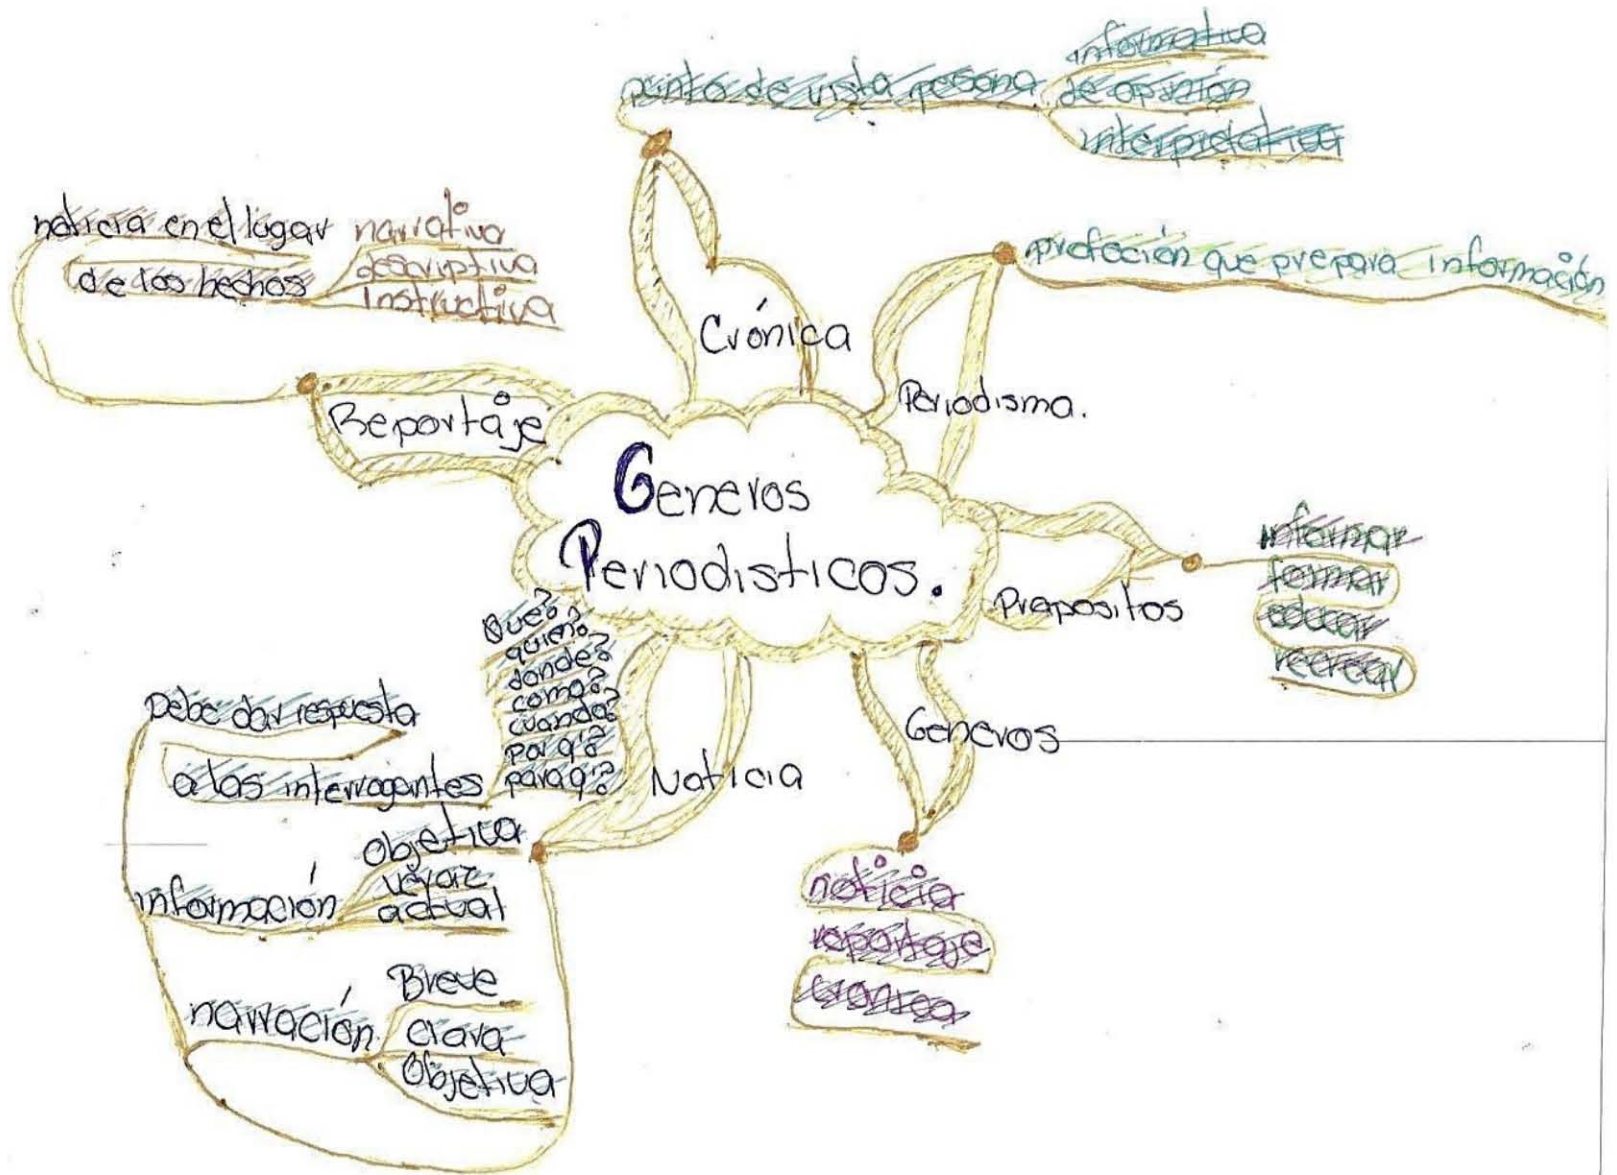 Generos
Periodisticos.
Crónica
punto de vista persona
informativa
de opinión
interpretativa
Periodisma.
profeción que prepara información
Propositos
informar
formar
educar
recrear
Generos
noticia
reportaje
cronica
Noticia
Debe dar respuesta
a las interrogantes
Que?
quien?
donde?
como?
cuando?
por q'?
para q'?
información
Objetiva
actual
narración
Breve
Clara
Objetiva
Reportaje
noticia en el lugar
de los hechos
narrativa
descriptiva
instructiva